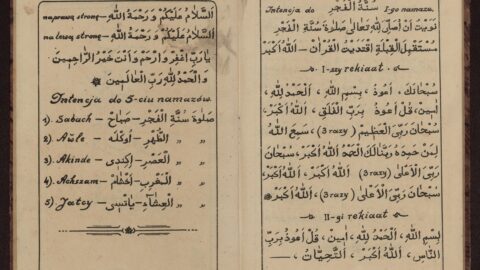 naprawą stronę— اَلسَّلَامُ عَلَيْكُمْ وَ رَحْمَةُ اللهِ
na lewą stronę— اَلسَّلَامُ عَلَيْكُمْ وَ رَحْمَةُ اللهِ
يَا رَبِّ اغْفِرْ وَارْحَمْ وَاَنْتَ خَيْرُ الرَّاحِمِينَ
وَ الْحَمْدُ لِلّٰهِ رَبِّ الْعَالَمِينَ
Intencja do 5-ciu namazów.
1). Sabach — صَلٰوةَ سُنَّةُ الْفَجْرِ — صَبَاح
2). Aŭle — الظُّهْرِ — اُوكْلَه „ „
3). Akinde — الْعَصْرِ — اِكِنْدِى „ „
4). Achszam — الْمَغْرِبِ — اَخْشَامْ „ „
5) Jatcy — الْعِشَاءِ — يَاتْسِى „ „
Intencja do سُنَّةُ الْفَجْرِ I-go namazu.
نَوَيْتُ اَنْ اُصَلِّىَ لِلّٰهِ تَعَالٰى صَلٰوةَ سُنَّةِ الْفَجْرِ
مُسْتَقْبِلَ الْقِبْلَةِ اِقْتَدَيْتُ الْقُرْاٰنَ — اَللهُ اَكْبَرُ
I-szy rekiaat
سُبْحَانَكَ، اَعُوذُ، بِسْمِ اللهِ، اَلْحَمْدُ لِلّٰهِ،
اٰمِينَ، قُلْ اَعُوذُ بِرَبِّ الْفَلَقِ، اَللهُ اَكْبَرُ،
سُبْحَانَ رَبِّىَ الْعَظِيمِ (3 razy)، سَمِعَ اللهُ
لِمَنْ حَمِدَهُ رَبَّنَا لَكَ الْحَمْدُ اَللهُ اَكْبَرُ، سُبْحَانَ
رَبِّىَ الْاَعْلٰى (3 razy)، اَللهُ اَكْبَرُ، اَللهُ اَكْبَرُ،
سُبْحَانَ رَبِّىَ الْاَعْلٰى (3 razy)، اَللهُ اَكْبَرُ
II-gi rekiaat
بِسْمِ اللهِ، اَلْحَمْدُ لِلّٰهِ، اٰمِينَ، قُلْ اَعُوذُ بِرَبِّ
النَّاسِ، اَللهُ اَكْبَرُ، اَلتَّحِيَّاتُ، —